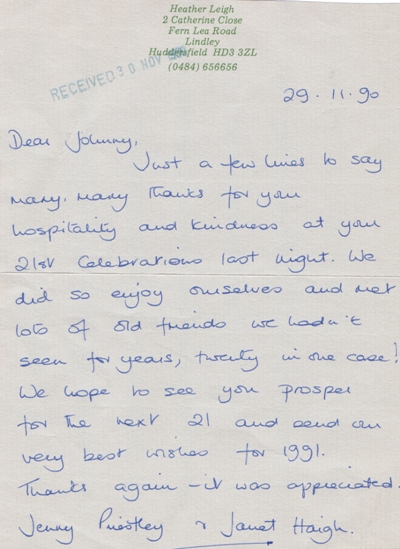 Heather Leigh
2 Catherine Close
Fern Lea Road
Lindley
Huddersfield HD3 3ZL
(0484) 656656
RECEIVED 30 NOV
29.11.90
Dear Johnny,
Just a few lines to say
many, many thanks for your
hospitality and kindness at your
21st Celebrations last night. We
did so enjoy ourselves and met
lots of old friends we hadn't
seen for years, twenty in one case!
We hope to see you prosper
for the next 21 and send our
very best wishes for 1991.
Thanks again - it was appreciated.
Jenny Priestley & Janet Haigh.